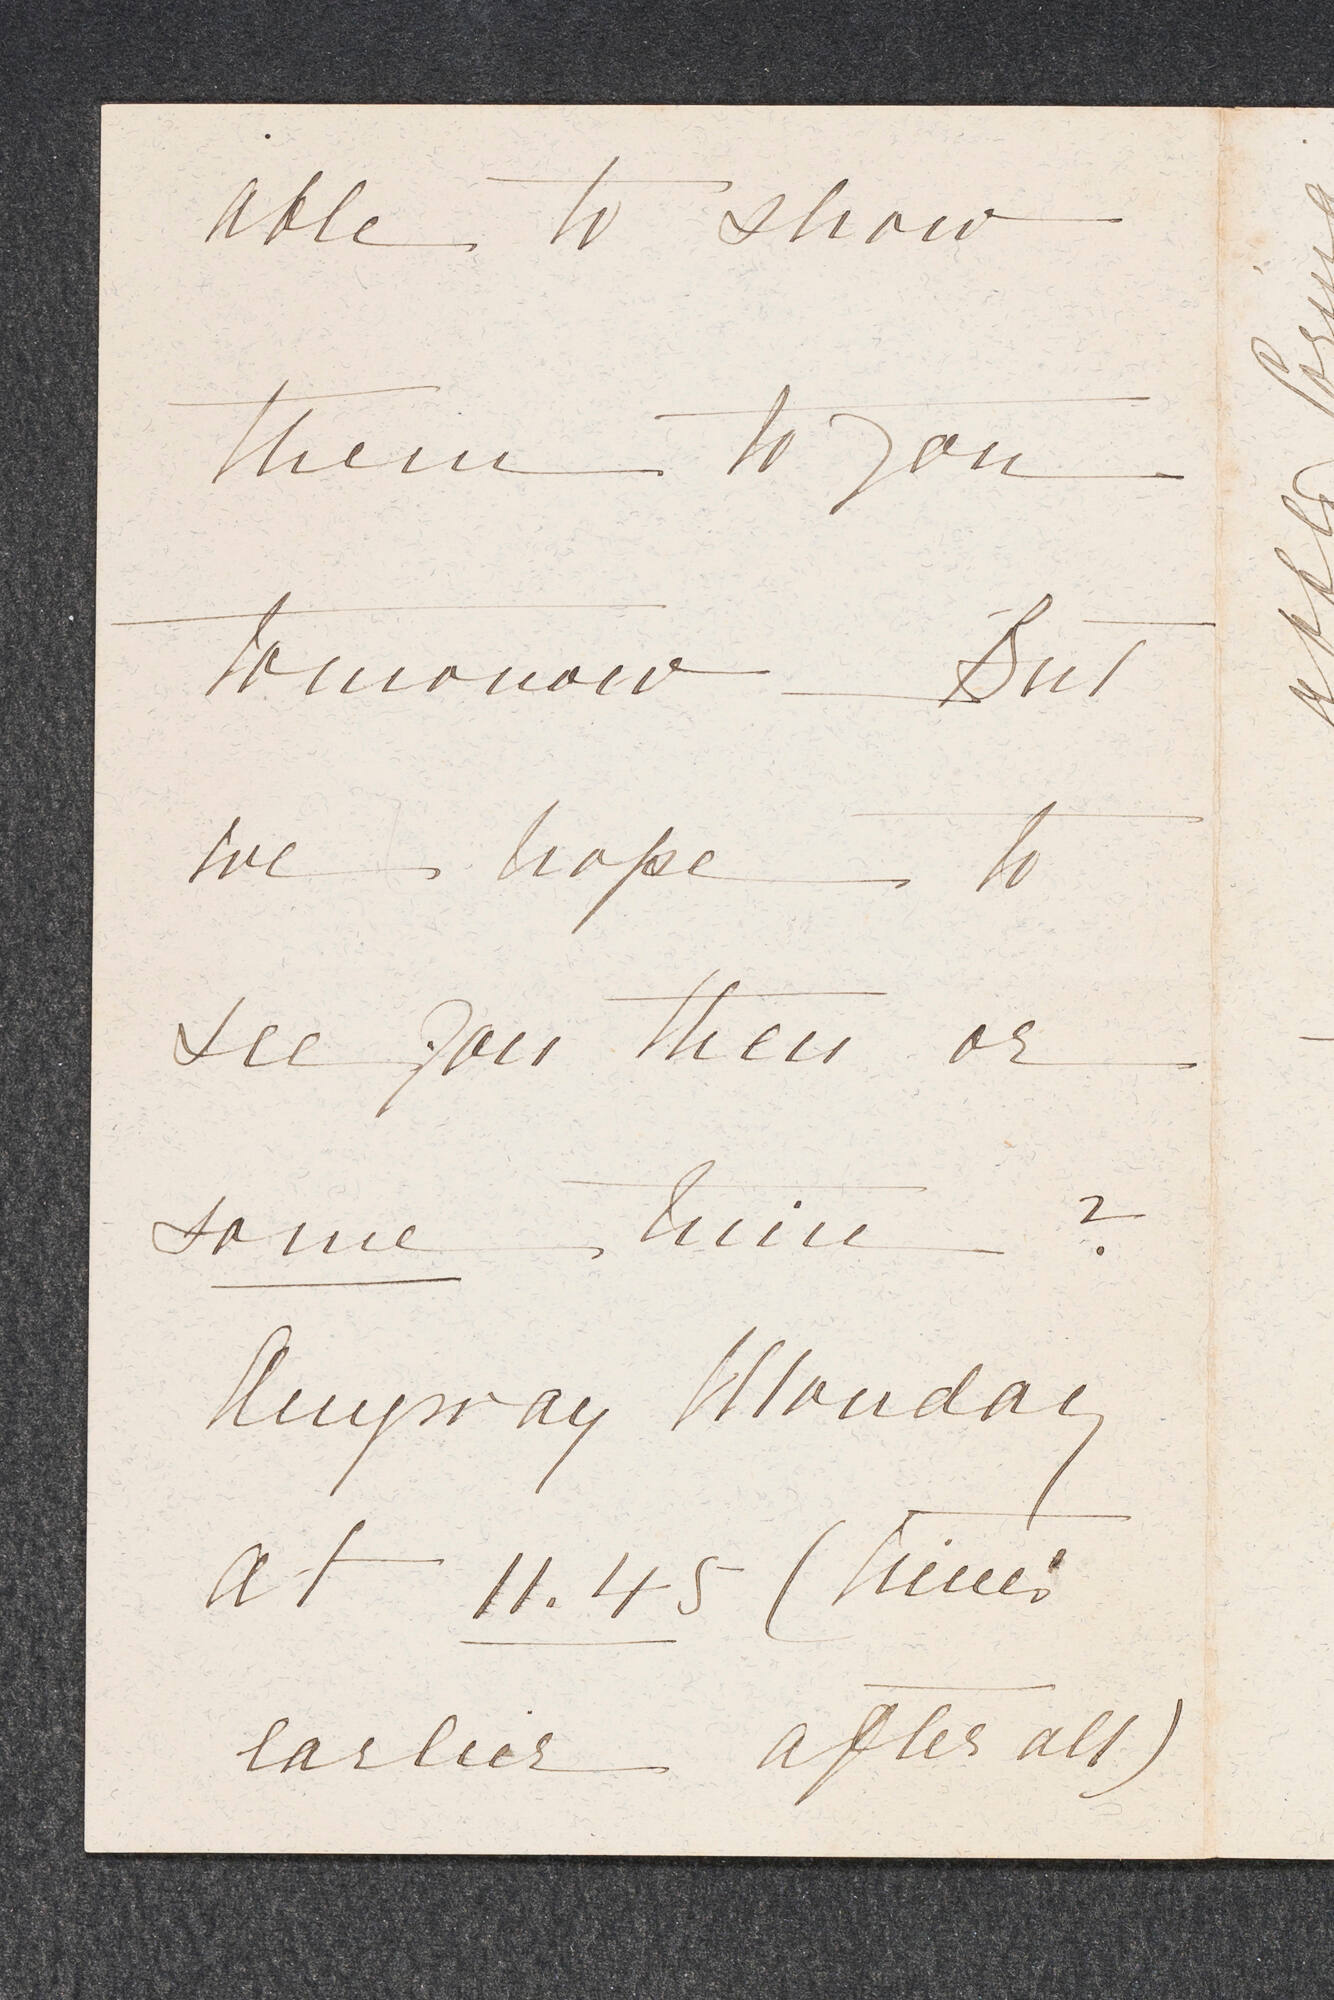 able to show
them to you
tomorrow — But
we hope to
see you then or
some time ?
Anyway Monday
at 11.45 (time's
earlier after all)